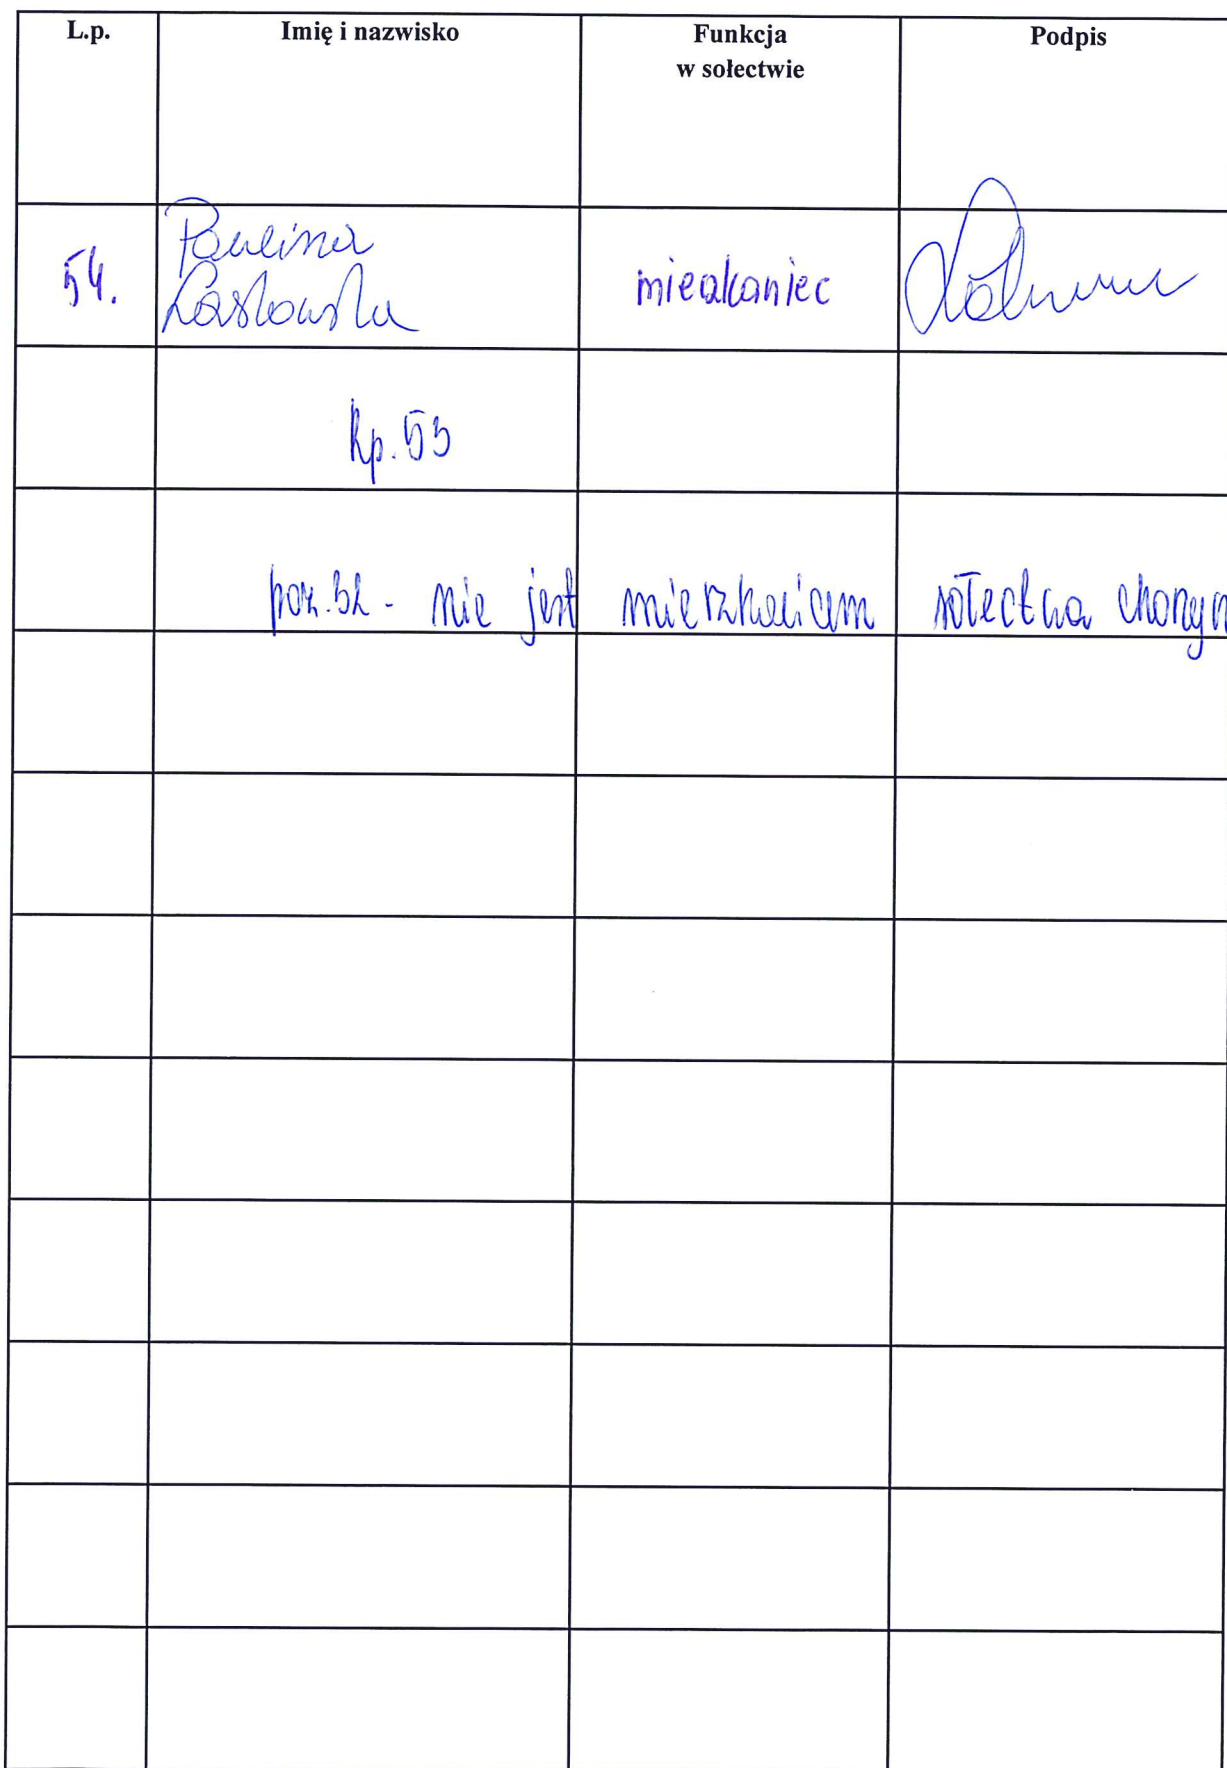 L.p. Imię i nazwisko Funkcja w sołectwie Podpis
54. Paulina Laskowska mieszkaniec
Rp. 53
poz. 52 - nie jest mieszkańcem sołectwa